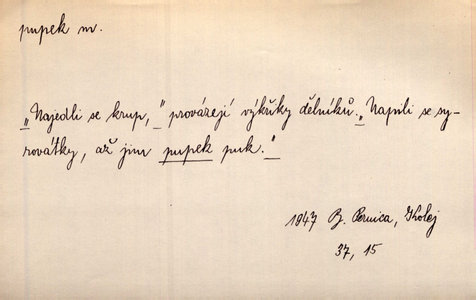 pupek m.
„Najedli se krup," provázejí výkřiky dělníků. „Napili se sy-
rovátky, až jim pupek puk."
1947 B. Pernica, Kolej
37, 15